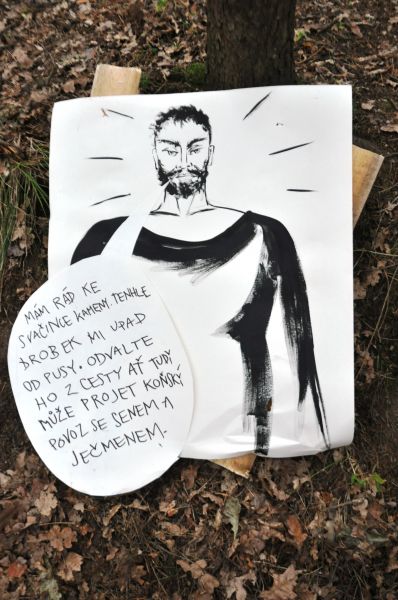 MÁM RÁD KE
SVAČINCE KAMENY. TENHLE
DROBEK MI UPAD
OD PUSY. ODVALTE
HO Z CESTY AŤ TUDY
MŮŽE PROJET KOŇSKÝ
POVOZ SE SENEM A
JEČMENEM.